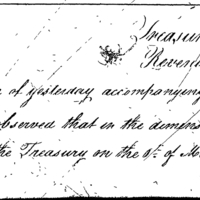 Treasur
Reven
of yesterday accompanying
observed that in the dimens
the Treasury on the 9th of M